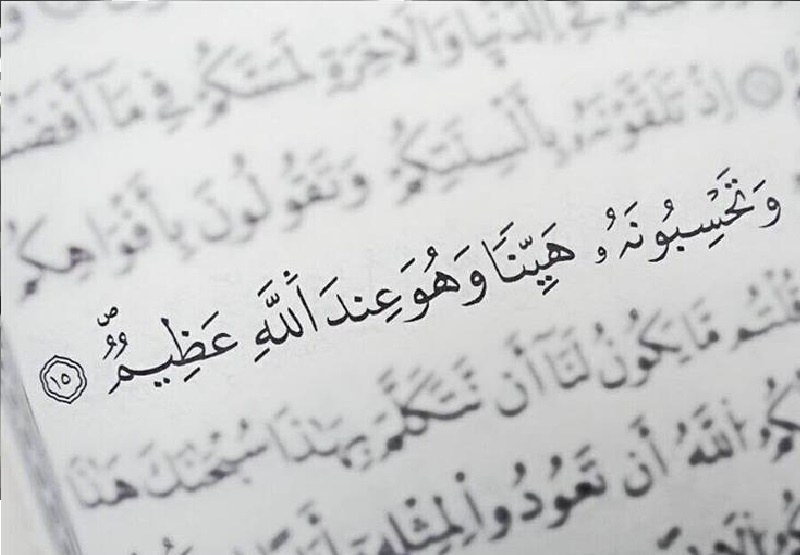 فِي الدُّنْيَا وَالْآخِرَةِ لَمَسَّكُمْ فِي مَا أَفَضْتُ
إِذْ تَلَقَّوْنَهُۥ بِأَلْسِنَتِكُمْ وَتَقُولُونَ بِأَفْوَاهِكُم
وَتَحْسِبُونَهُۥ هَيِّنًا وَهُوَ عِندَ اللَّهِ عَظِيمٌ ١٥
قُلْتُم مَّا يَكُونُ لَنَا أَن نَّتَكَلَّمَ بِهَٰذَا سُبْحَٰنَكَ هَٰذَا
كُمُ اللَّهُ أَن تَعُودُوا لِمِثْلِهِ